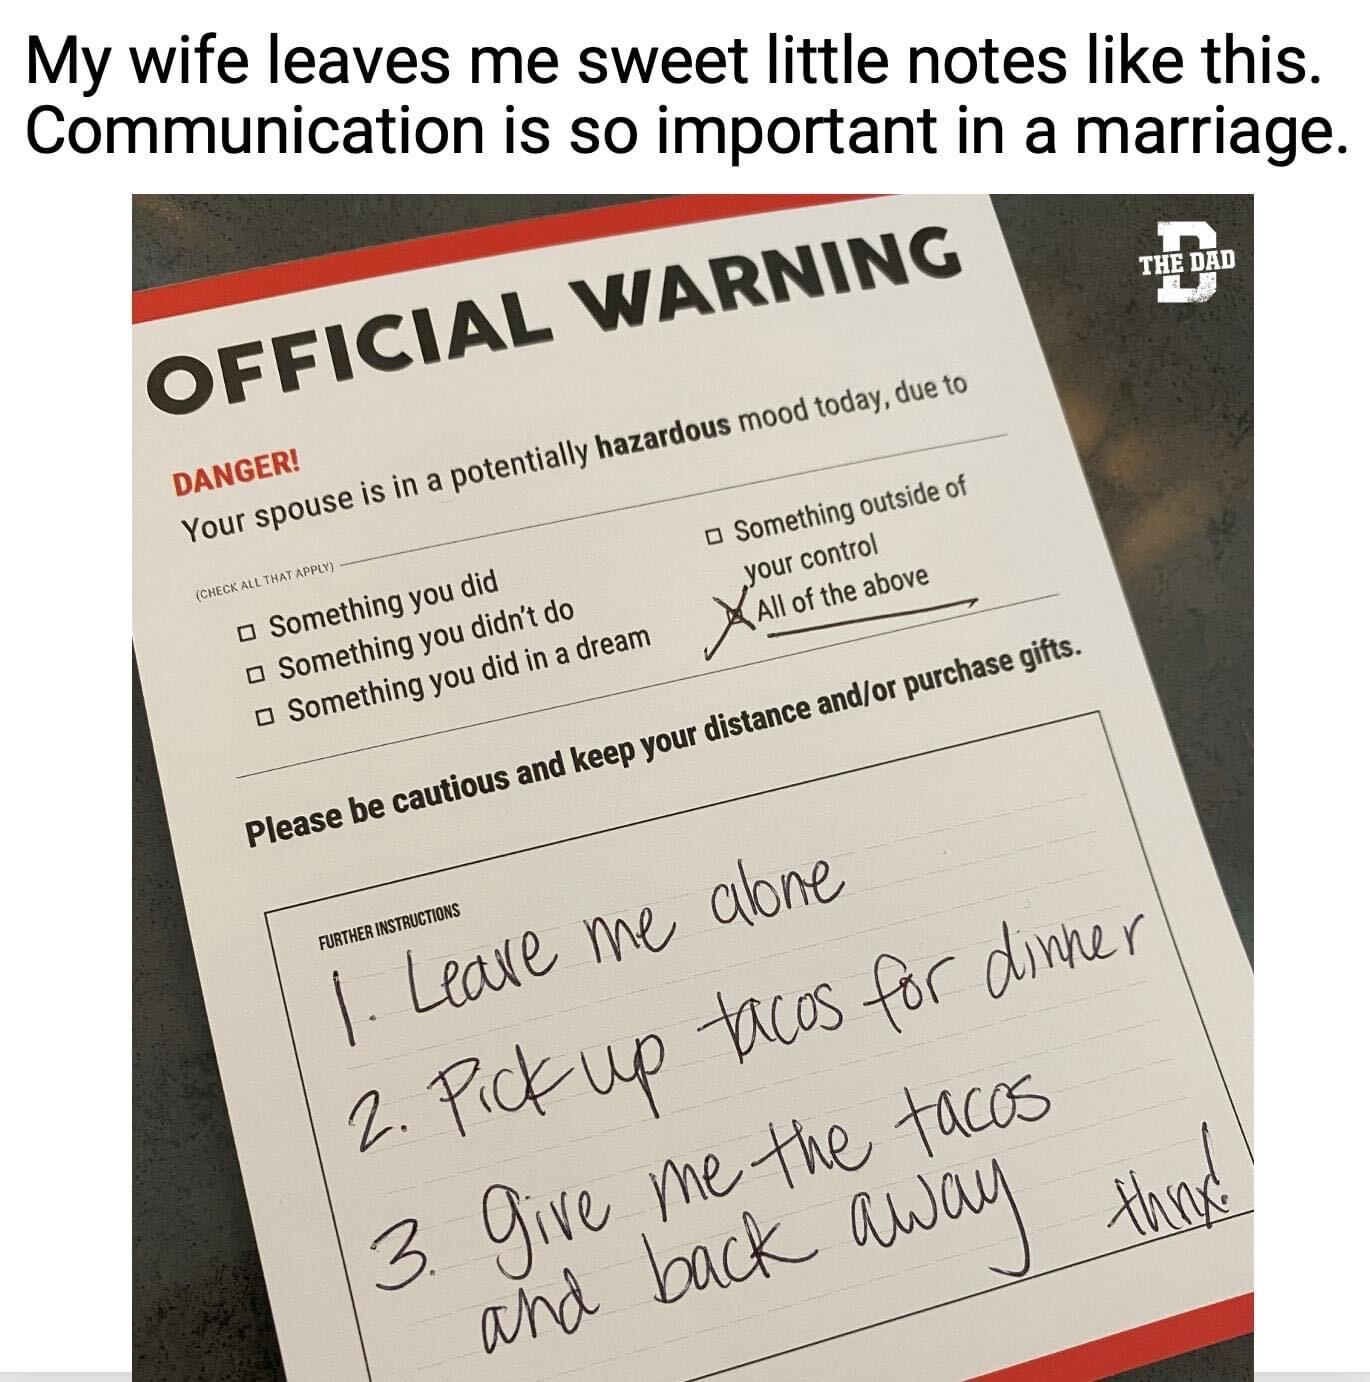 My wife leaves me sweet little notes like this.
Communication is so important in a marriage.
THE DAD
OFFICIAL WARNING
DANGER!
Your spouse is in a potentially hazardous mood today, due to
(CHECK ALL THAT APPLY)
Something you did
Something you didn't do
Something you did in a dream
Something outside of
your control
All of the above
Please be cautious and keep your distance and/or purchase gifts.
FURTHER INSTRUCTIONS
1. Leave me alone
2. Pick up tacos for dinner
3. Give me the tacos
and back away thnx!